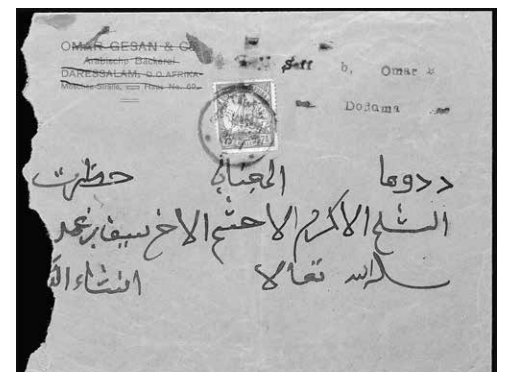 OMAR GESAN & C
Arabische Bäckerei
DARESSALAM, D.O.AFRIKA
Seff b, Omar
Dodama
ددوما الجناب حضرت
الشيخ الاكرم الاحشم الاخ سيف بن عمر
سلمه الله تعالا انشاء الله